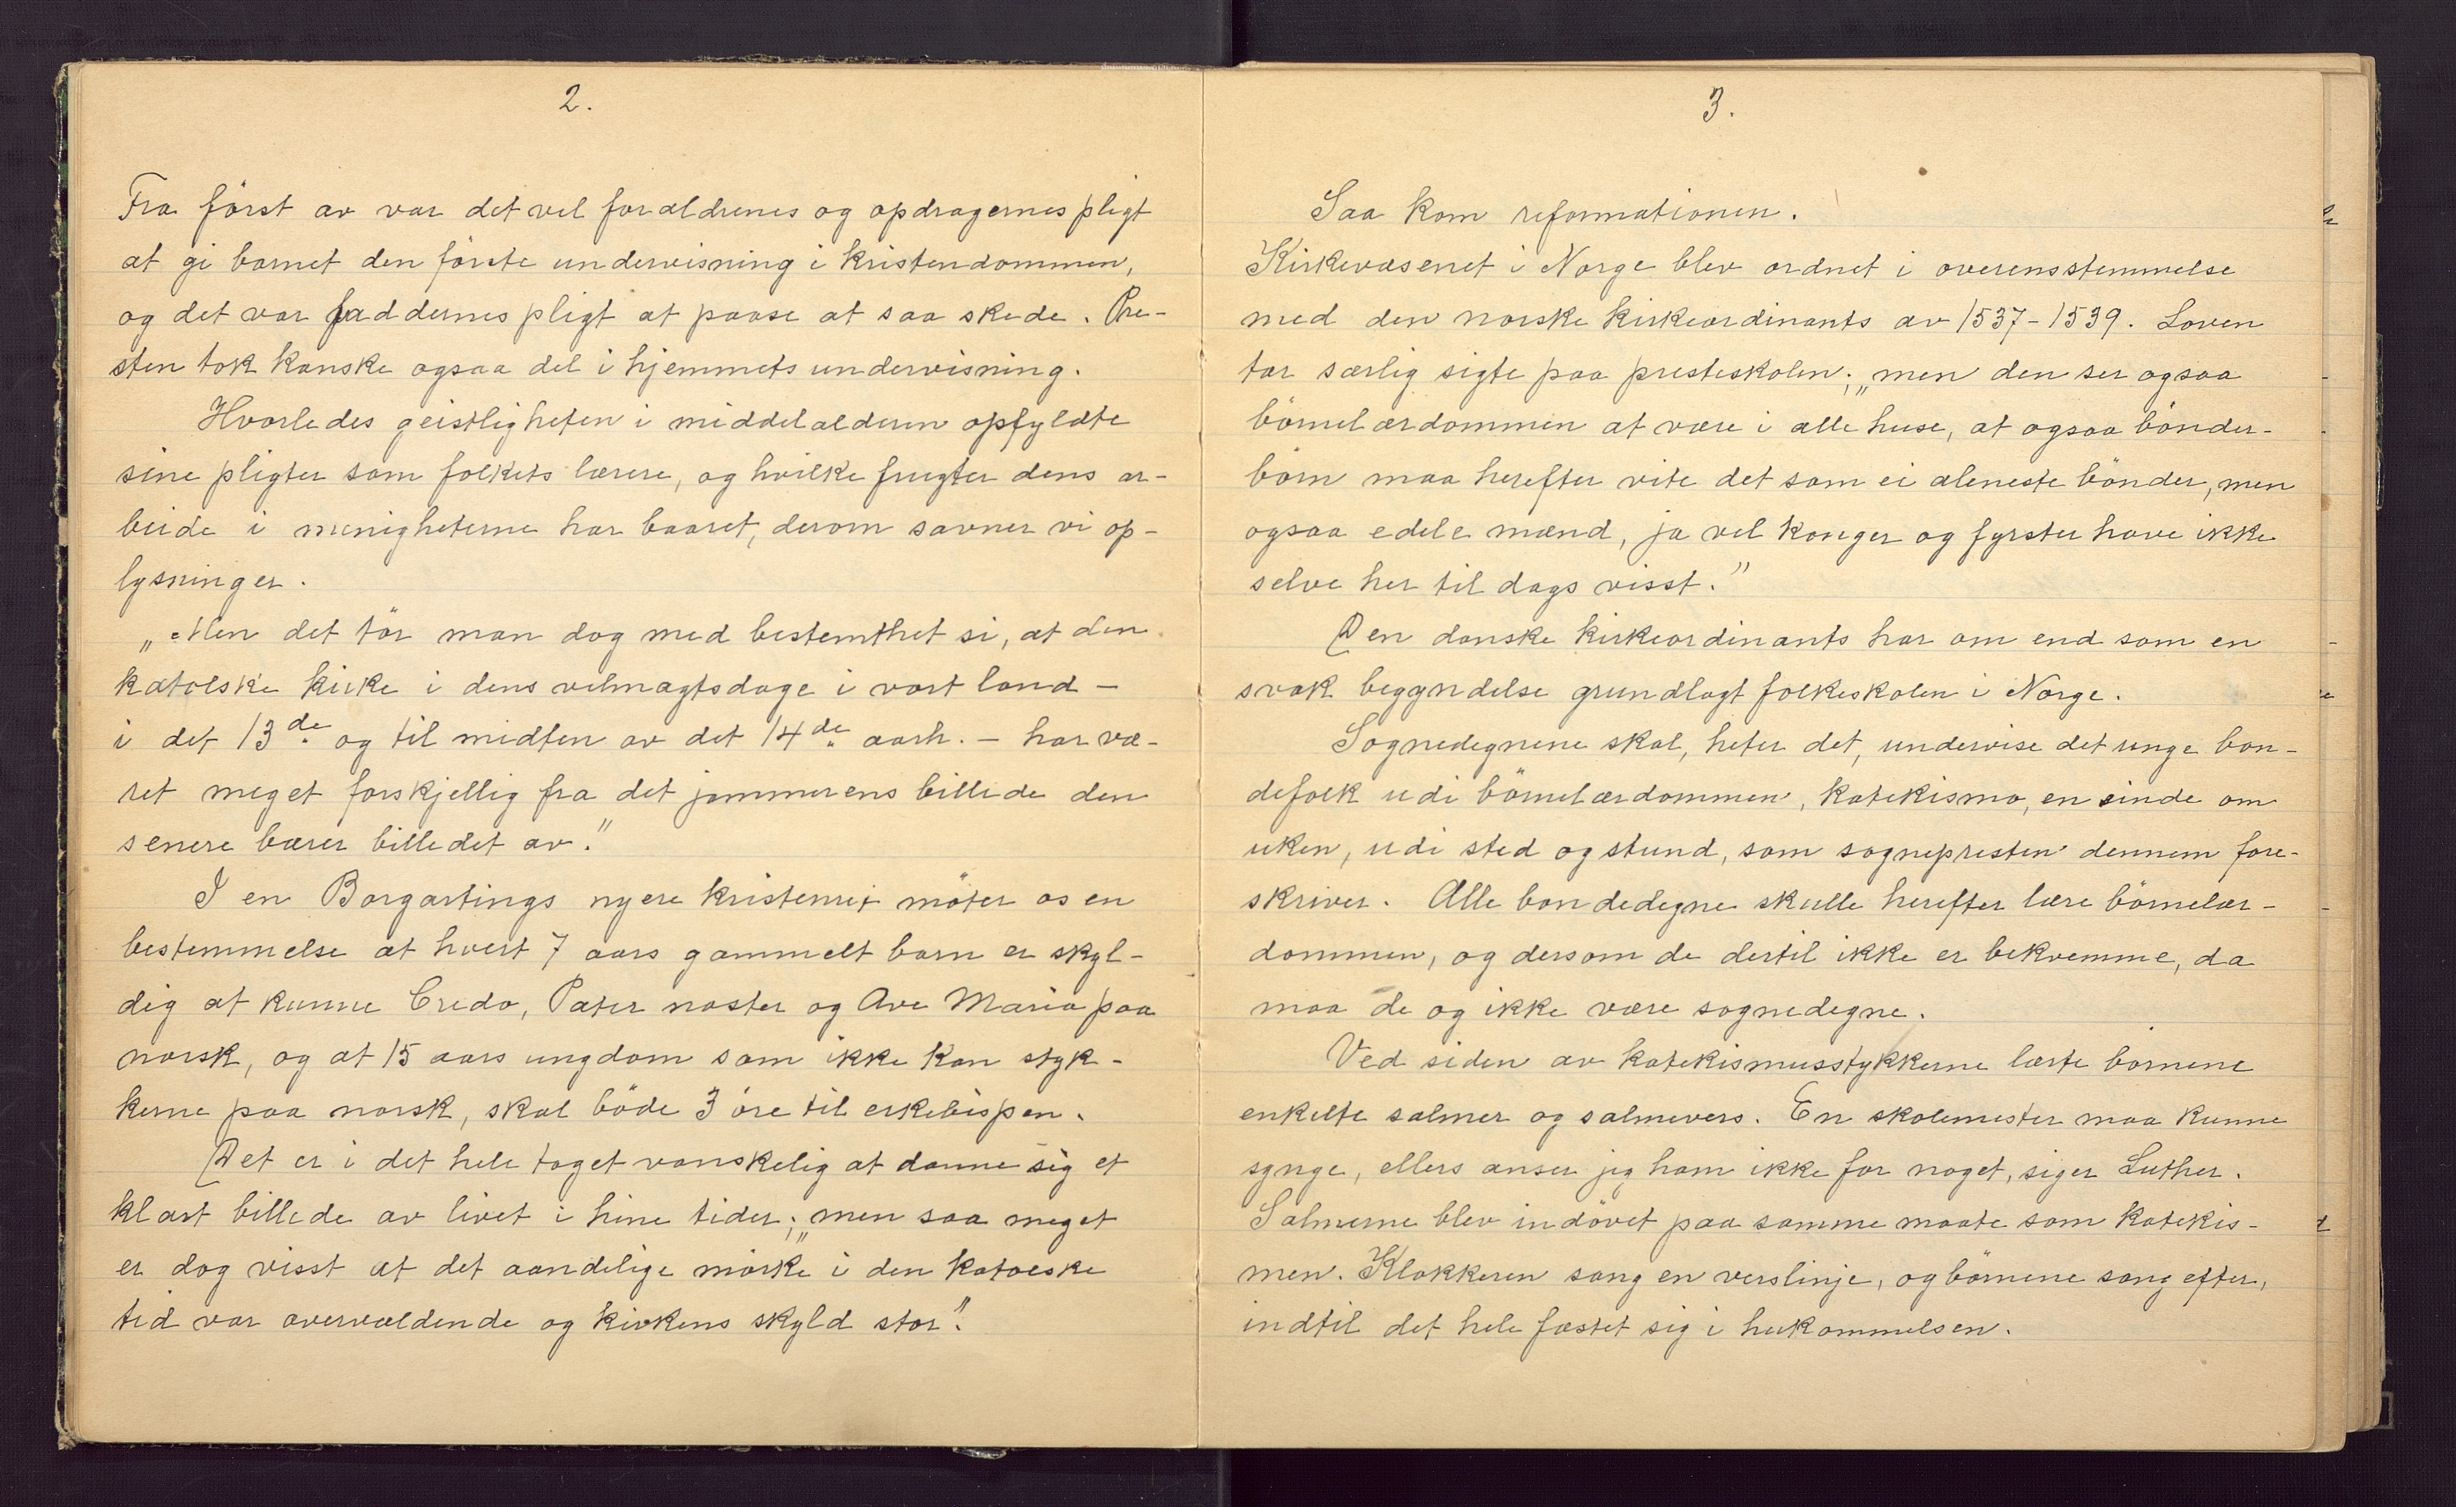 2.
Fra först av var det vel forældrenes og opdragernes pligt
at gi barnet den første undervisning i kristendommen,
og det var faddernes pligt at paase at saa skede. Pre-
sten tok kanske ogsaa del i hjemmets undervisning.
Hvorledes geistligheten i middelalderen opfyldte
sine pligter som folkets lærere, og hvilke frugter dens ar-
beide i menigheterne har baaret, derom savner vi op-
lysninger.
„Men det tör man dog med bestemthet si, at den
katolske kirke i dens velmagtsdage i vort land –
i det 13de og til midten av det 14de aarh. – har væ-
ret meget forskjellig fra det jammerens billede den
senere bærer billedet av."
I en Borgartings nyere kristenret möter os en
bestemmelse at hvert 7 aars gammelt barn er skyl-
dig at kunne Credo, Pater noster og Ave Maria paa
norsk, og at 15 aars ungdom som ikke kan styk-
kerne paa norsk, skal böde 3 öre til erkebispen.
Det er i det hele taget vanskelig at danne sig et
klart billede av livet i hine tider; „men saa meget
er dog visst at det aandelige mörke i den katolske
tid var overvældende og kirkens skyld stor."
3.
Saa kom reformationen.
Kirkevæsenet i Norge blev ordnet i overensstemmelse
med den norske kirkeordinants av 1537-1539. Loven
tar særlig sigte paa presteskolen; „men den ser ogsaa
börnelærdommen at være i alle huse, at ogsaa bönder-
börn maa herefter vite det som ei aleneste bönder, men
ogsaa edele mænd, ja vel konger og fyrster have ikke
selve her til dags visst."
Den danske kirkeordinants har om end som en
svak begyndelse grundlagt folkeskolen i Norge.
Sognedegnene skal, heter det, undervise det unge bon-
defolk udi börnelærdommen, katekismo, en sinde om
uken, udi sted og stund, som sognepresten dennem fore-
skriver. Alle bondedegne skulle herefter lære börnelær-
dommen, og dersom de dertil ikke er bekvemme, da
maa de og ikke være sognedegne.
Ved siden av katekismusstykkerne lærte börnene
enkelte salmer og salmevers. En skolemester maa kunne
synge, ellers anser jeg ham ikke for noget, siger Luther.
Salmerne blev indövet paa samme maate som katekis-
men. Klokkeren sang en verslinje, og börnene sang efter,
indtil det hele fæstet sig i hukommelsen.